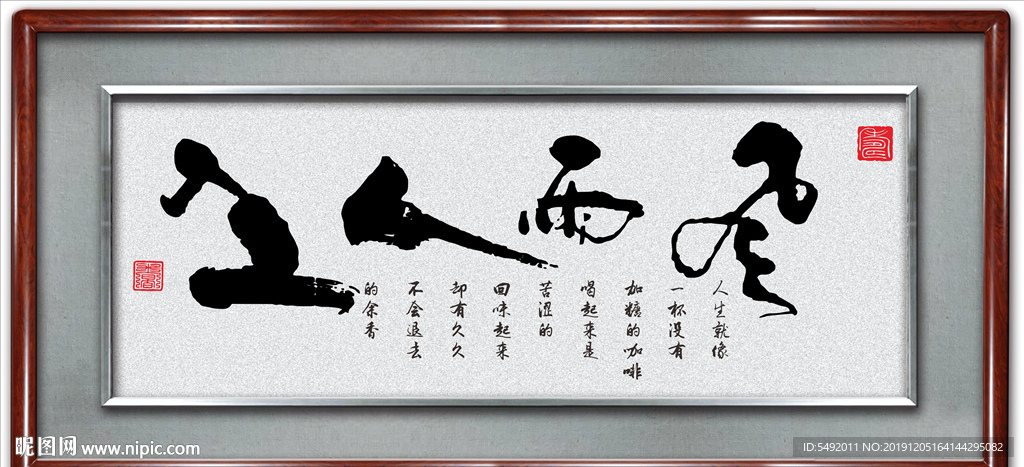 风雨人生
人生就像
一杯没有
加糖的咖啡
喝起来是
苦涩的
回味起来
却有久久
不会退去
的余香
昵图网 www.nipic.com
ID:5492011 NO:20191205164144295082